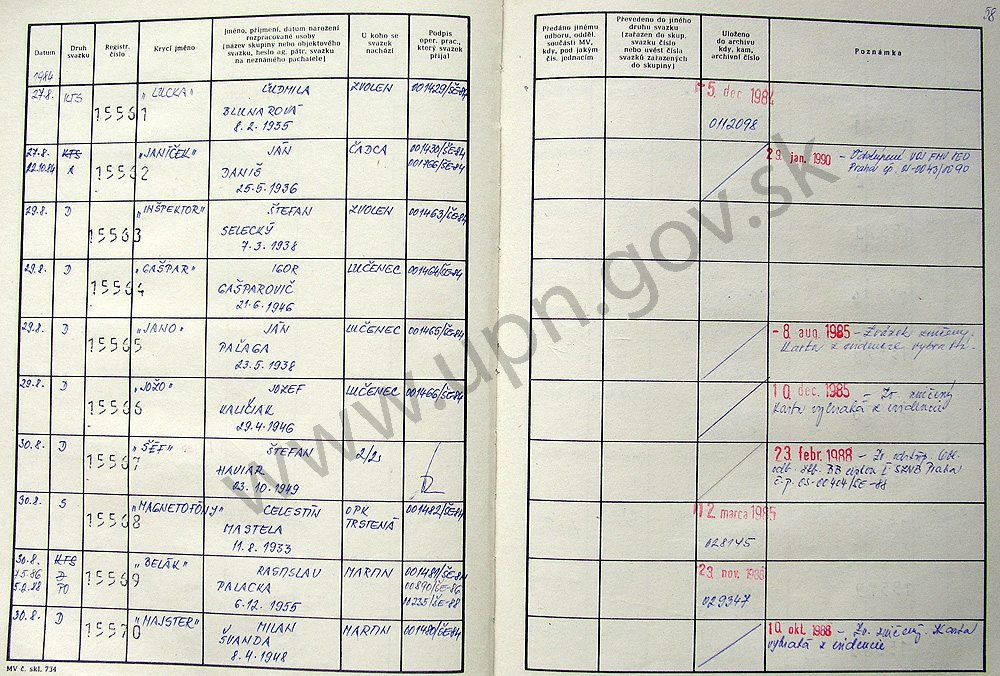 58
Datum
Druh svazku
Registr. číslo
Krycí jméno
Jméno, příjmení, datum narození
rozpracované osoby
(název skupiny nebo objektového
svazku, heslo ag. pátr. svazku
na neznámého pachatele)
U koho se
svazek
nachází
Podpis
oper. prac.,
který svazek
přijal
Předáno jinému
odboru, odděl.
součásti MV,
kdy, pod jakým
čís. jednacím
Převedeno do jiného
druhu svazku
(zařazen do skup.
svazku číslo
nebo uvést čísla
svazků zařazených
do skupiny)
Uloženo
do archivu
kdy, kam,
archivní číslo
Poznámka
1984
27.8. KTS 15561 "LUCKA" ĽUDMILA ZVOLEN 001429/ŠE-84 5. dec 1984
8.2.1935 0112098
27.8. KTS 15562 "JANÍČEK" JÁN ČADCA 001430/ŠE-84 29. jan. 1990
22.10.84 A DANIŠ 001766/ŠE-84
25.5.1936
29.8. D 15563 "INŠPEKTOR" ŠTEFAN ZVOLEN 001463/ŠE-84
SELECKÝ
7.3.1938
29.8. D 15564 "GAŠPAR" IGOR LUČENEC 001464/ŠE-84
GAŠPAROVIČ
21.6.1946
29.8. D 15565 "JANO" JÁN LUČENEC 001465/ŠE-84 - 8. aug. 1985 - Zväzok zničený.
PAĽAGA Karta z evidencie vybratá.
23.5.1938
29.8. D 15566 "JOŽO" JOZEF LUČENEC 001466/ŠE-84 10. dec. 1985 - Zv. zničený
KALIČIAK Karta vybratá z evidencie
29.4.1946
30.8. D 15567 "ŠÉF" ŠTEFAN 2/2s 23. febr. 1988
HAVIAR
23.10.1949
30.8. S 15568 "MAGNETOFÓNY" CELESTÍN OPK TRSTENÁ 001482/ŠE-84 12. marca 1985
MASTELA 028145
11.8.1933
30.8. KTS 15569 "BELÁK" RASTISLAV MARTIN 001481/ŠE-84 23. nov. 1988
7.5.86 D PALACKA 00890/ŠE-86 029347
5.2.88 PO 6.12.1955 00235/ŠE-88
30.8. D 15570 "MAJSTER" MILAN MARTIN 001480/ŠE-84 10. okt. 1988 - Zv. zničený. Karta
ŠVANDA vybratá z evidencie
8.4.1948
MV č. skl. 734
www.upn.gov.sk